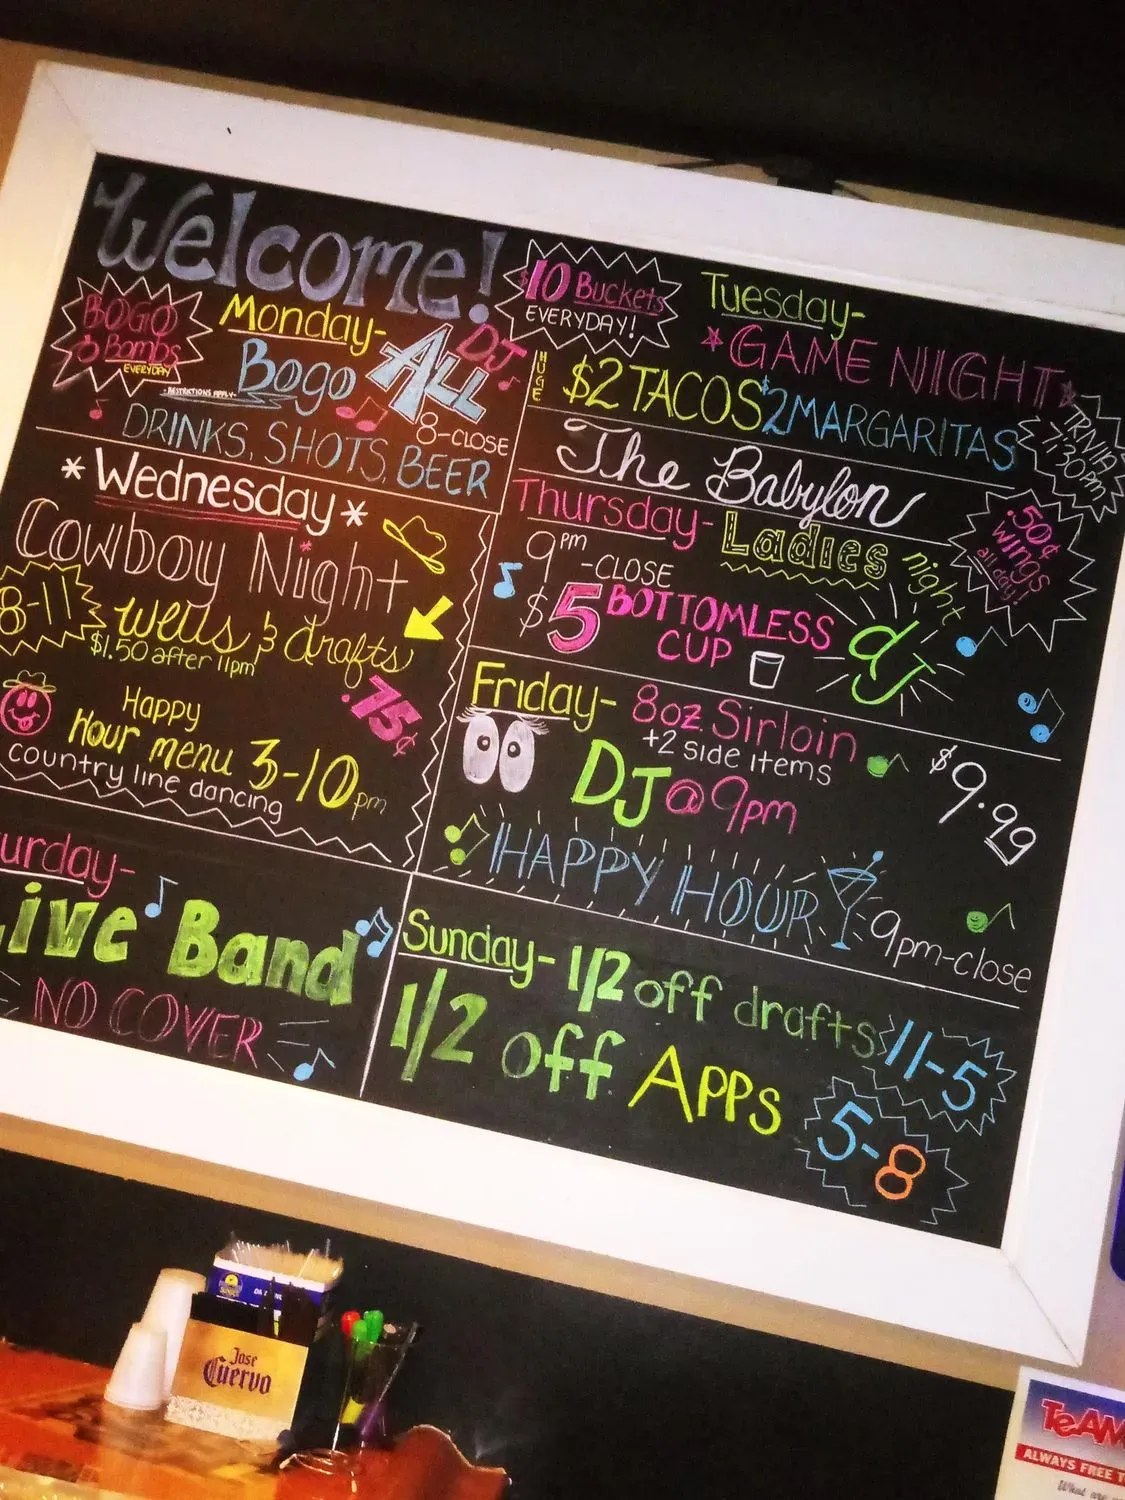 Welcome!
$10 Buckets
EVERYDAY!
BOGO
Bombs
EVERYDAY
Monday-
DJ
Bogo ALL
-RESTRICTIONS APPLY-
8-CLOSE
DRINKS, SHOTS, BEER
Tuesday-
*GAME NIGHT*
HUGE
$2 TACOS $2 MARGARITAS
TRIVIA
7:30pm
The Babylon
*Wednesday*
Cowboy Night
8-11
Wells & drafts
$1.50 after 11pm
.75¢
Happy
Hour menu 3-10pm
country line dancing
Thursday- Ladies night
.50¢
wings
all day!
9pm
-CLOSE
$5 BOTTOMLESS
CUP
dJ
Friday- 8oz. Sirloin
+2 side items
$9.99
DJ @ 9pm
HAPPY HOUR
9pm-close
urday-
Live Band
NO COVER
Sunday- 1/2 off drafts 11-5
1/2 off Apps
5-8
Jose
Cuervo
TeAM
ALWAYS FREE T
What are